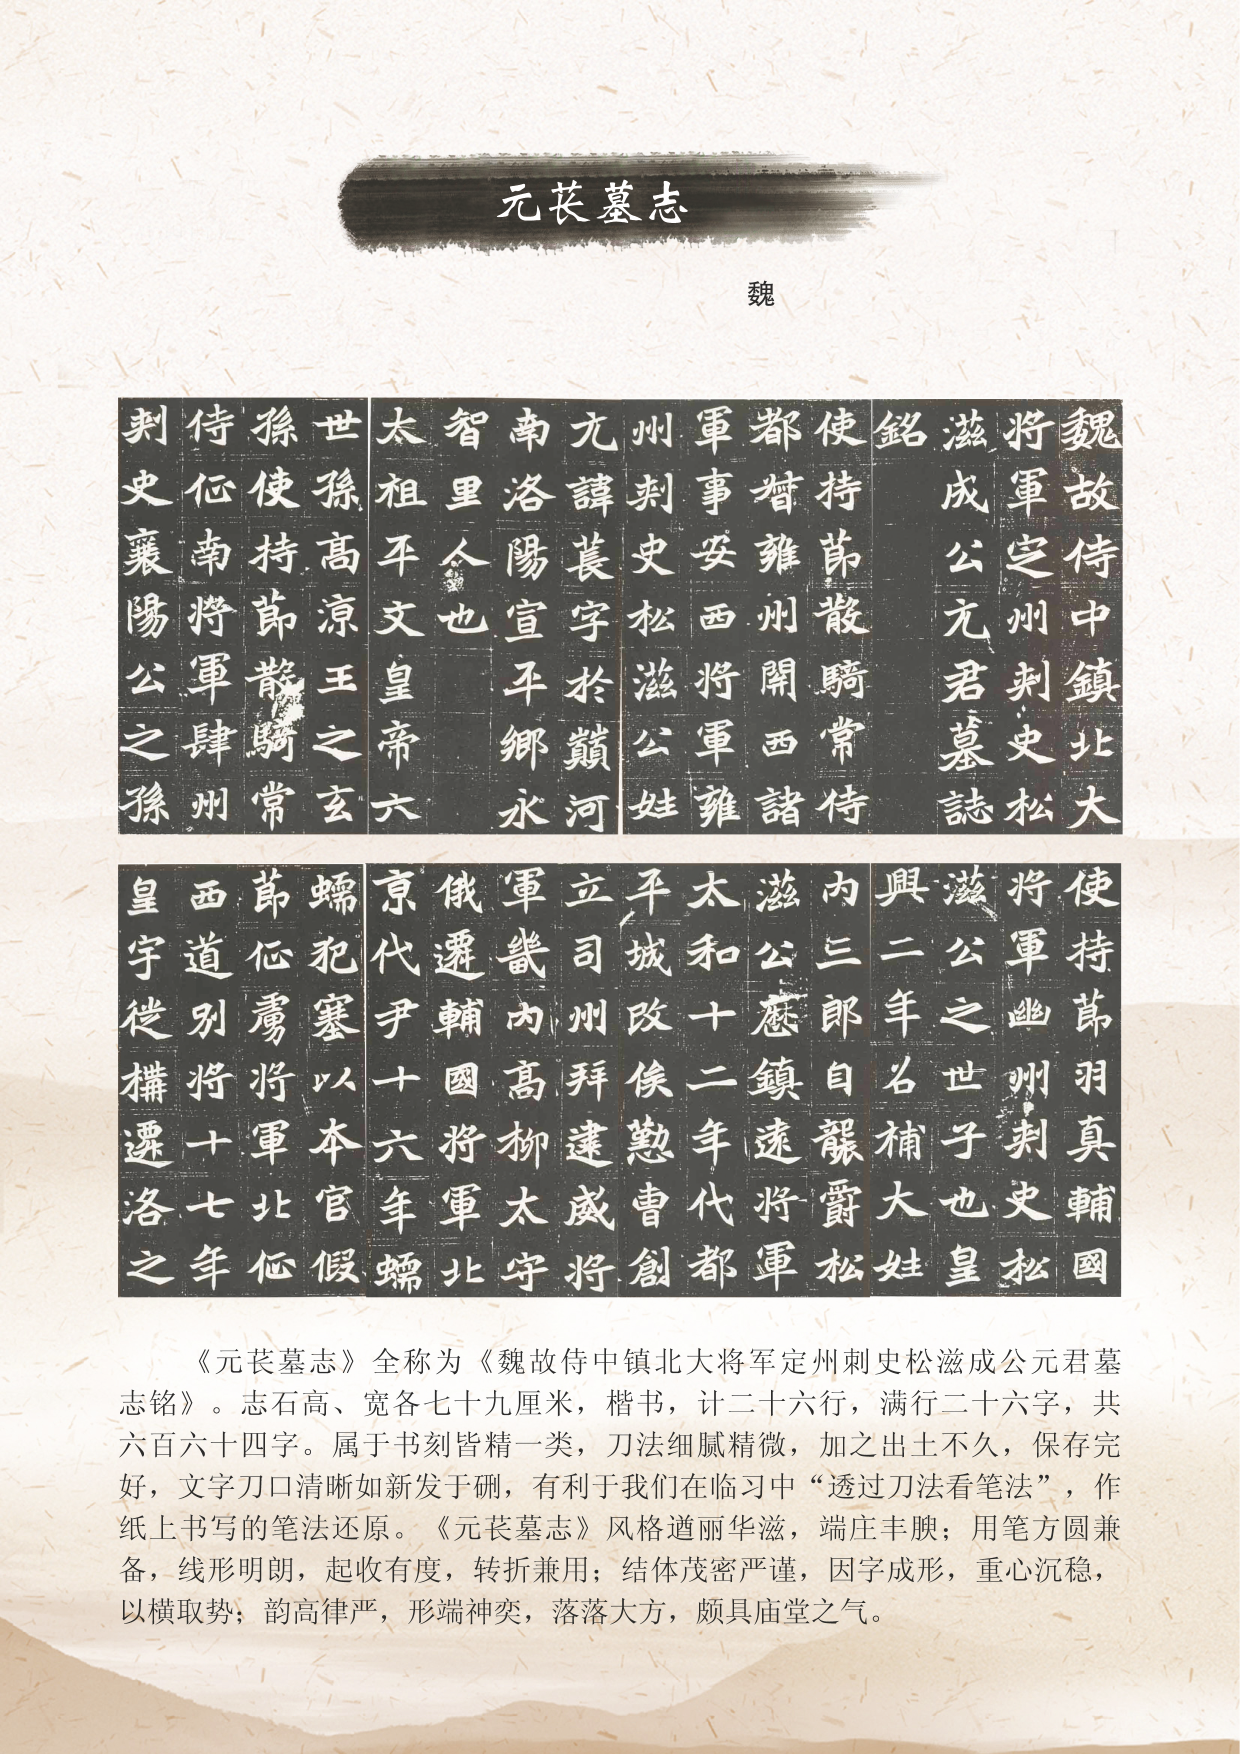 元苌墓志
魏
魏故侍中鎮北大
將軍定州刺史松
滋成公元君墓誌
銘
使持節散騎常侍
都督雍州關西諸
軍事安西將軍雍
州刺史松滋公姓
元諱萇字於巔河
南洛陽宣平鄉永
智里人也
太祖平文皇帝六
世孫高涼王之玄
孫使持節散騎常
侍征南將軍肆州
刺史襄陽公之孫
使持節羽真輔國
將軍幽州刺史松
滋公之世子也皇
興二年名補大姓
内三郎自襲爵松
滋公歷鎮遠將軍
太和十二年代都
平城改俟懃曹創
立司州拜建威將
軍畿内高柳太守
俄遷輔國將軍北
京代尹十六年蠕
蠕犯塞以本官假
節征虜將軍北征
西道別將十七年
皇宇徙構遷洛之
《元苌墓志》全称为《魏故侍中镇北大将军定州刺史松滋成公元君墓
志铭》。志石高、宽各七十九厘米，楷书，计二十六行，满行二十六字，共
六百六十四字。属于书刻皆精一类，刀法细腻精微，加之出土不久，保存完
好，文字刀口清晰如新发于硎，有利于我们在临习中“透过刀法看笔法”，作
纸上书写的笔法还原。《元苌墓志》风格遒丽华滋，端庄丰腴；用笔方圆兼
备，线形明朗，起收有度，转折兼用；结体茂密严谨，因字成形，重心沉稳，
以横取势；韵高律严，形端神奕，落落大方，颇具庙堂之气。